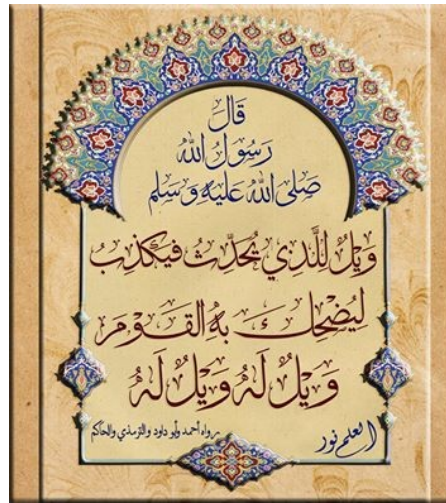 قال
رسول الله
صلى الله عليه وسلم
ويل للذي يحدث فيكذب
ليضحك به القوم
ويل له ويل له
رواه أحمد وأبو داود والترمذي والحاكم
العلم نور